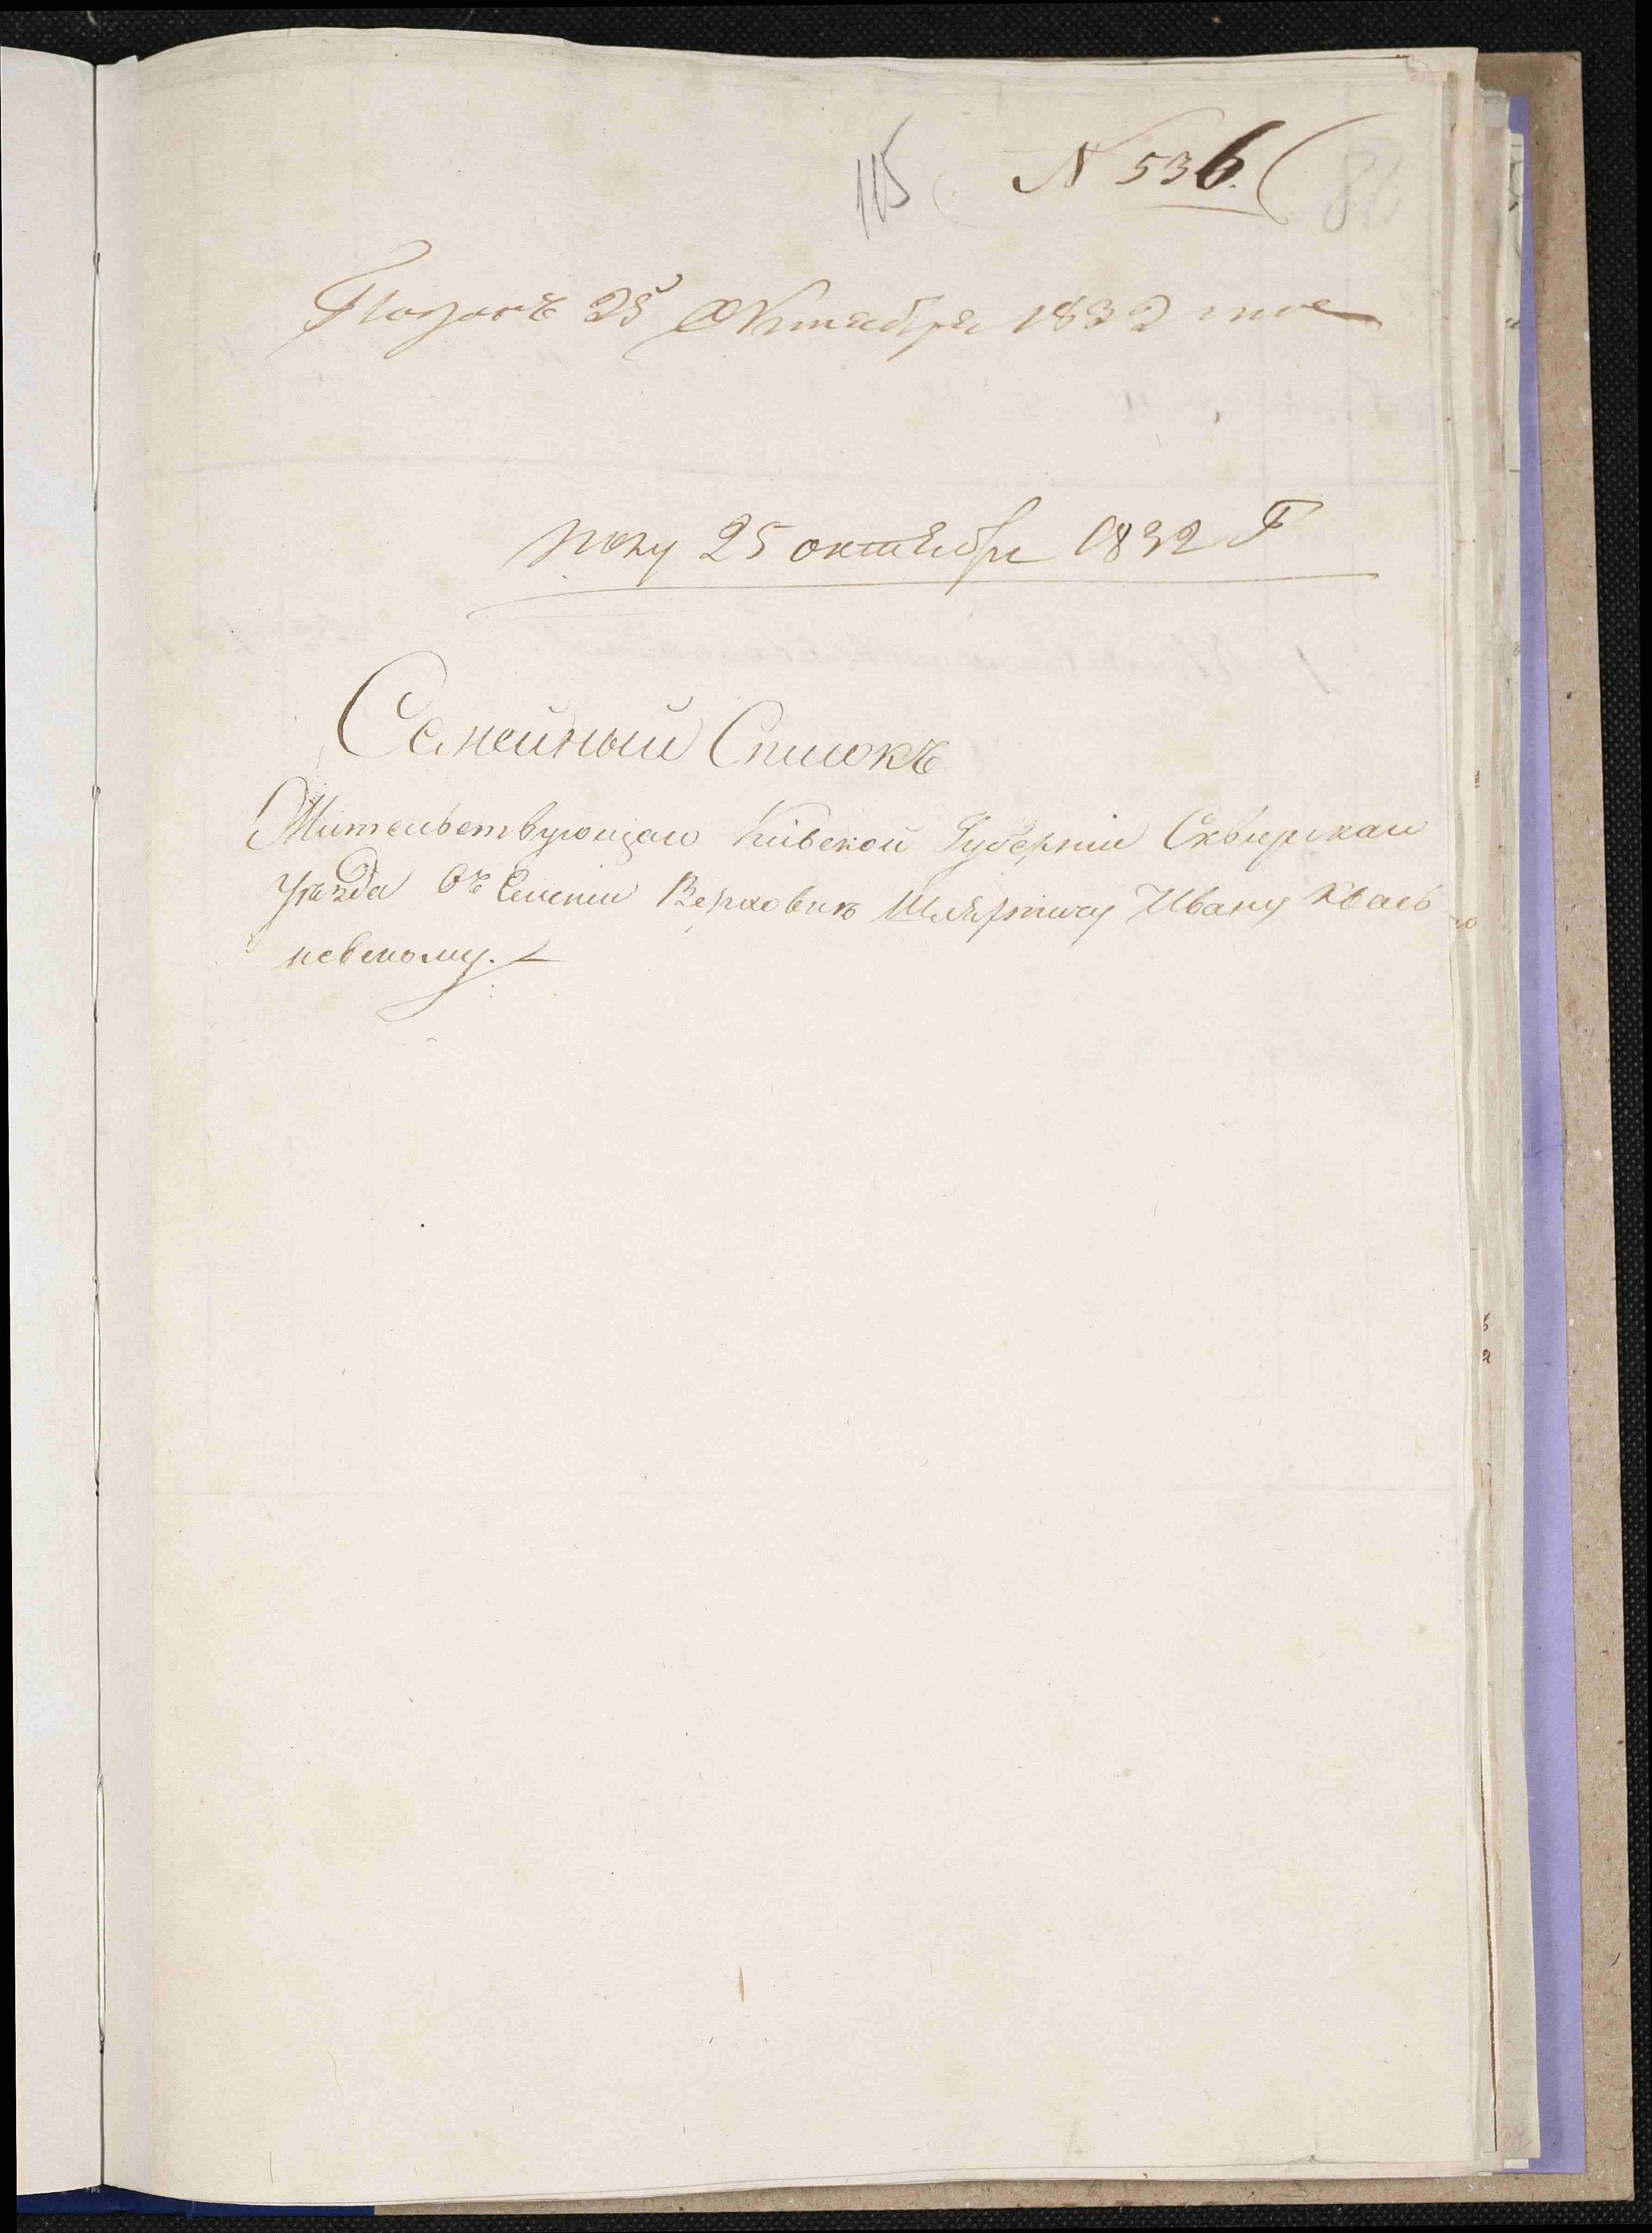 115 N 536. 86
Подонъ 25 Октября 1832 года
полу 25 октября 1832 Г
Семейный Списокъ
Жительствующаго Кіевской Губерніи Сквирскаго
уѣзда Въ Селеніи Верховнѣ Шляхтичу ИвануКвась
невскому.